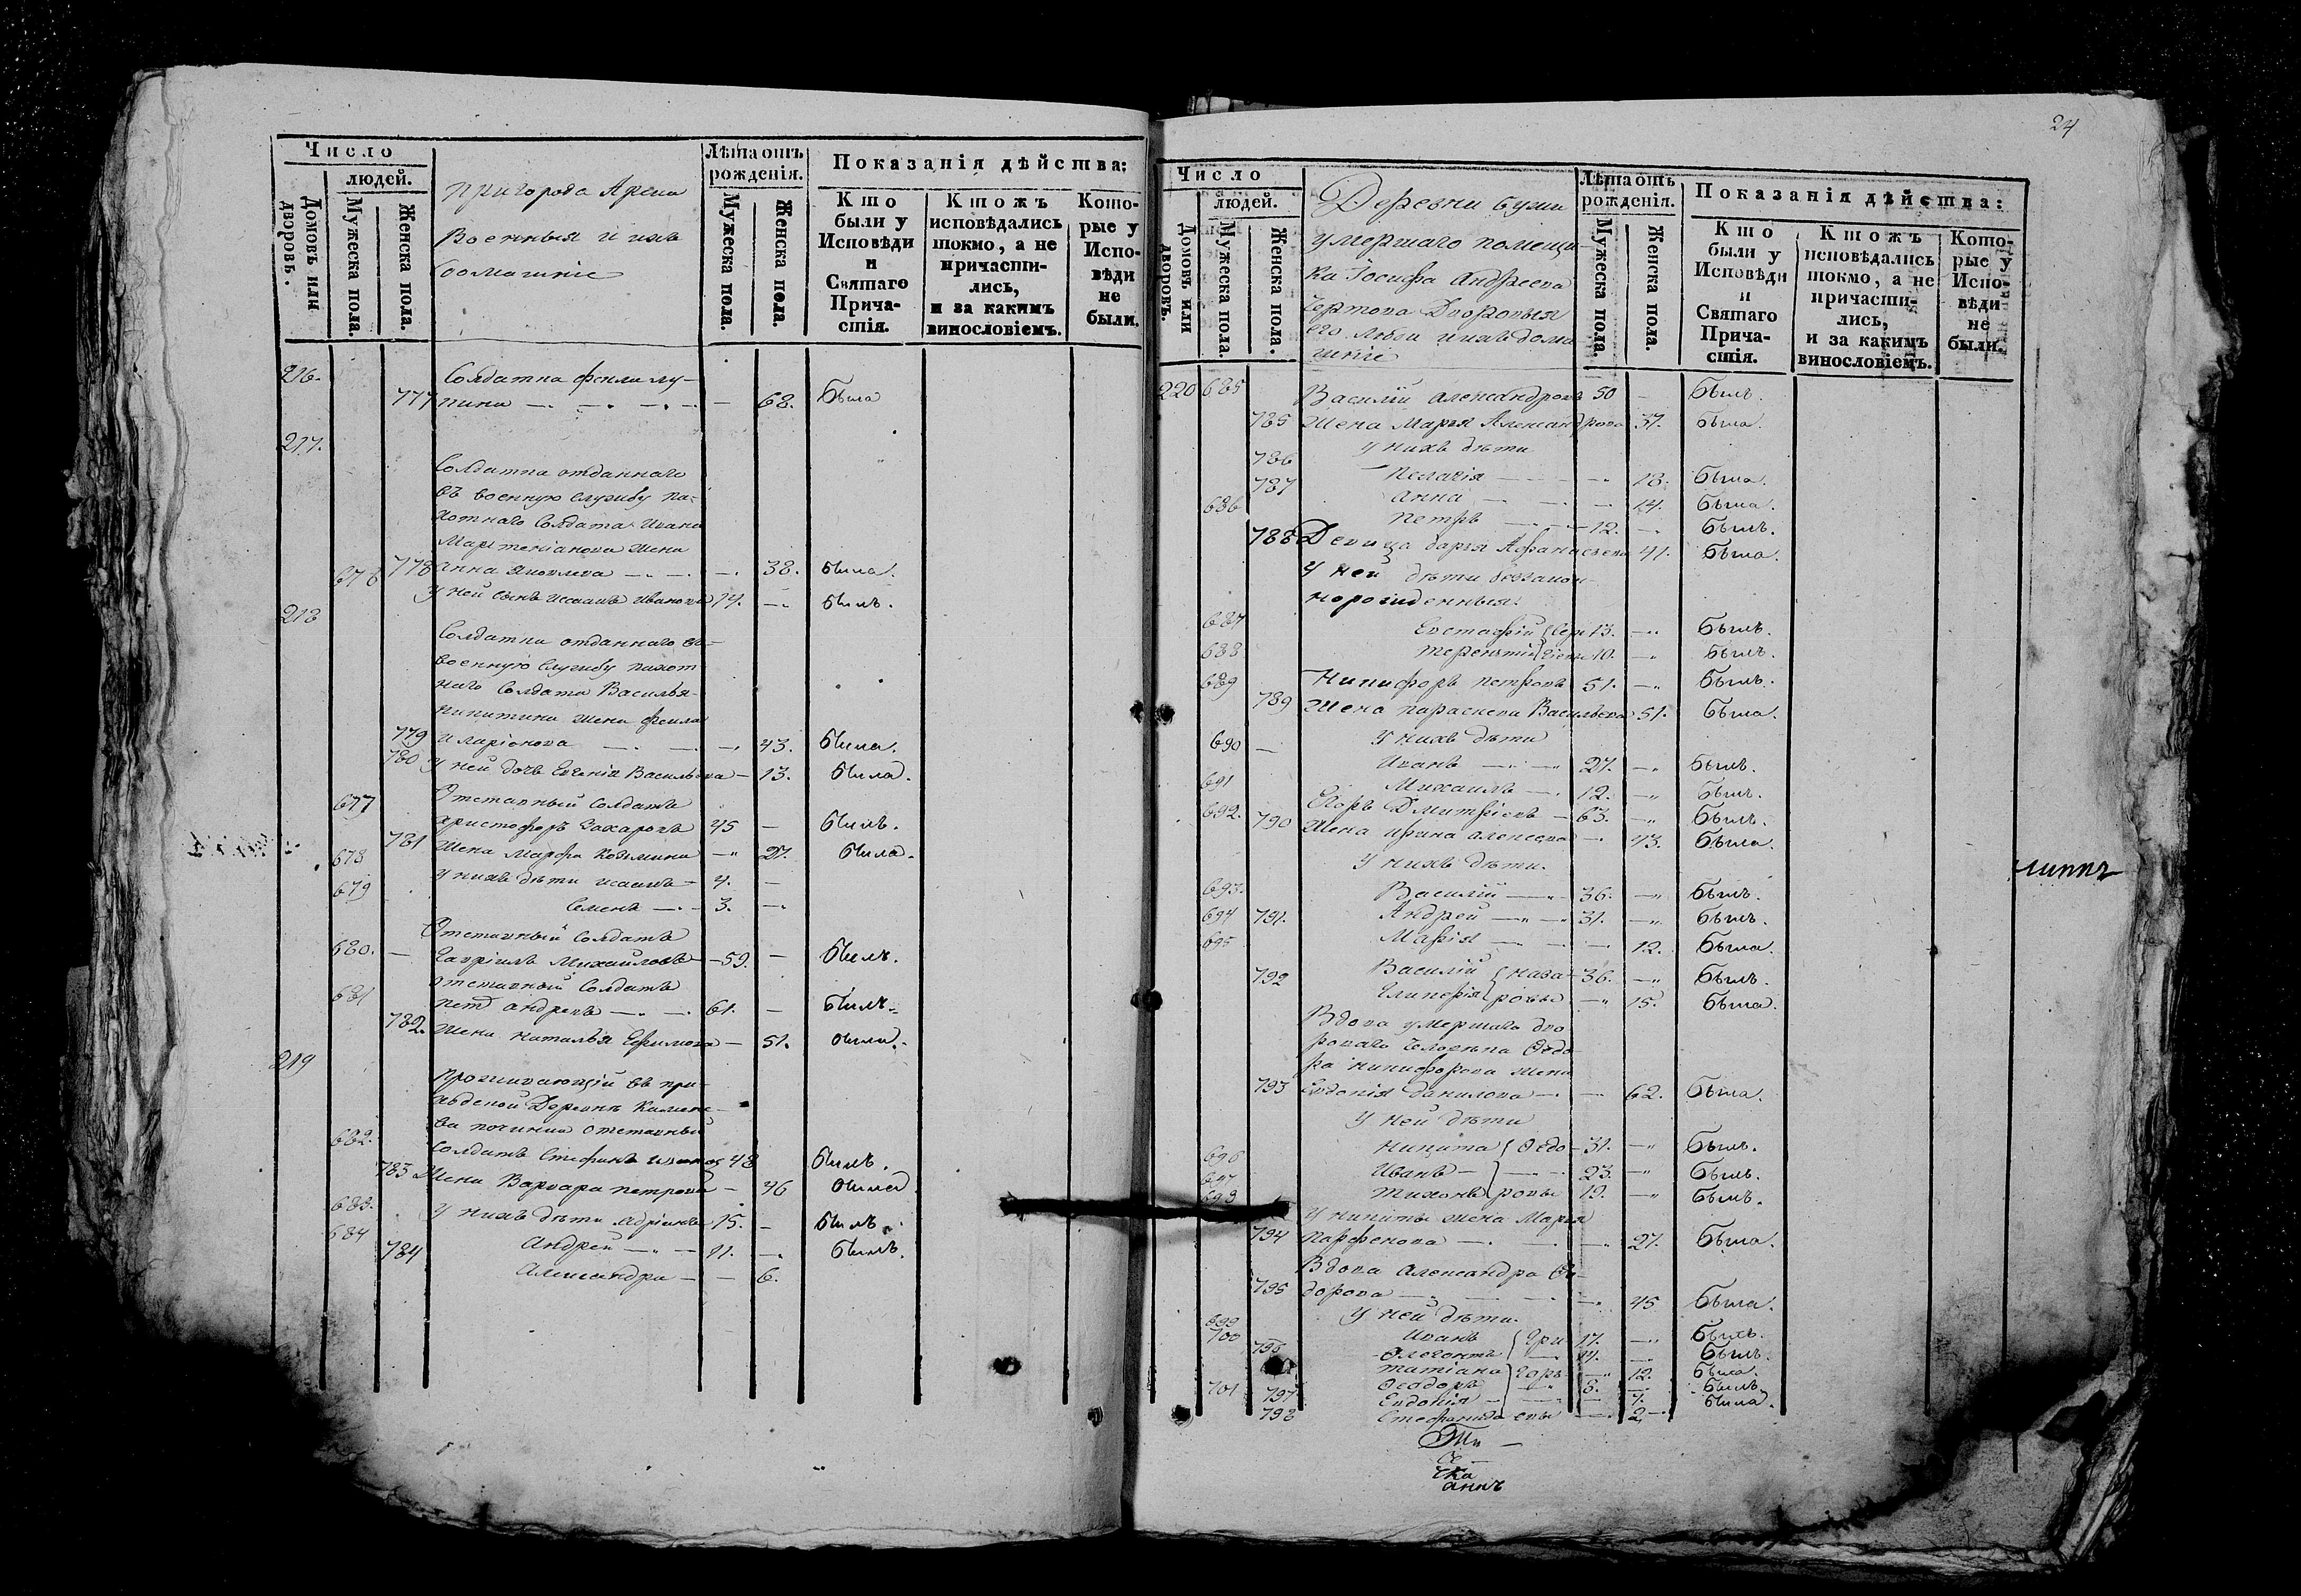 Число
людей.
Домовъ или дворовъ.
Мужеска пола.
Женска пола.
пригорода Арска
Военныя и ихъ
домашніе
Лѣта отъ рожденія.
Мужеска пола.
Женска пола.
Показанія дѣйства:
Кто были у Исповѣди и Святаго Причастія.
Ктожъ исповѣдались токмо, а не причастились, и за какимъ винословіемъ.
Которые у Исповѣди не были.
216.
Солдатка
777 — 68. была
217.
Солдатка отданнаго
въ военную службу пѣ-
хотнаго Солдата Ивана
жена
778 Анна Яковлева — 38. была.
676 У ней сынъ Исаакъ Ивановъ 14. — былъ.
218
Солдатка отданнаго въ
военную службу пѣхот-
наго Солдата Василья
Никитина жена Фекла
779 Иларіонова — 43. была.
780 У ней дочь Евгенія Васильева — 13. была.
Отставный солдатъ
677 Христофоръ Захаровъ 45 — былъ.
781 Жена Марфа Козьмина — 27. была.
678 У нихъ дѣти Исаакъ — 4. —
679 Семенъ — 3. —
Отставный солдатъ
680. — Гавріилъ Михайловъ — 59. — былъ.
Отставный Солдатъ
681 Петръ Андреевъ — 61. — былъ.
782. Жена Наталья Ефимова — 51. была.
219
Проживающій въ при-
Деревнѣ
починка отставный
682. Солдатъ Стефанъ 48 былъ.
783 Жена Варвара Петрова — 46 была
683. У нихъ дѣти Адріанъ 15. — былъ.
684 Андрей — 11. — былъ.
784 Александра — — 6.
24
Число
людей.
Домовъ или дворовъ.
Мужеска пола.
Женска пола.
Деревни
умершаго помещи-
ка Іосифа Андреева
Чертова Дворовыя
его люди и ихъ дома-
шніе
Лѣта отъ рожденія.
Мужеска пола.
Женска пола.
Показанія дѣйства:
Кто были у Исповѣди и Святаго Причастія.
Ктожъ исповѣдались токмо, а не причастились, и за какимъ винословіемъ.
Которые у Исповѣди не были.
220 685 Василій Александровъ 50 — былъ.
785 Жена Марья Александрова 37. была.
У нихъ дѣти
786 Пелагія — 18. была.
787 Анна — 14. была.
686 Петръ — 12. — былъ.
788 Девица Дарья Афанасьева 41. была.
У ней дѣти беззакон-
норожденныя.
687 Евстафій 13. — былъ.
688 Терентій 10. — былъ.
689 Никифоръ Петровъ 51. — былъ.
789 Жена Параскева Васильева 51. была.
У нихъ дѣти
690 — Иванъ — 27. — былъ.
691 Михаилъ — 12. — былъ.
692. Егоръ Дмитріевъ — 63. — былъ.
790 Жена Ирина Алексеева — 43. была.
У нихъ дѣти.
693. Василій — 36. — былъ.
694 Андрей — 31. — былъ.
791. Марія — 12. была.
695 Василій Наза- 36. — былъ.
792 Гликерія ровы — 15. была.
Вдова умершаго дво-
роваго человѣка Ѳедо-
ра Никифорова жена
793 Евдокія Данилова — 62. была.
У ней дѣти
696 Никита Ѳедо- 31. — былъ.
697 Иванъ — 23. — былъ.
698 Тихонъ ровы 19. — былъ.
У Никиты жена Марья
794 Парфенова — 27. была.
Вдова Александра Ѳе-
795 дорова — 45 была.
У ней дѣти.
699 Иванъ Гри- 17. — былъ.
700 14. — былъ.
796 Татіана горь- — 12. была.
701 Ѳеодоръ 8. — былъ.
797 Евдокія — 7. была.
798 Стефанида евы — 2. —